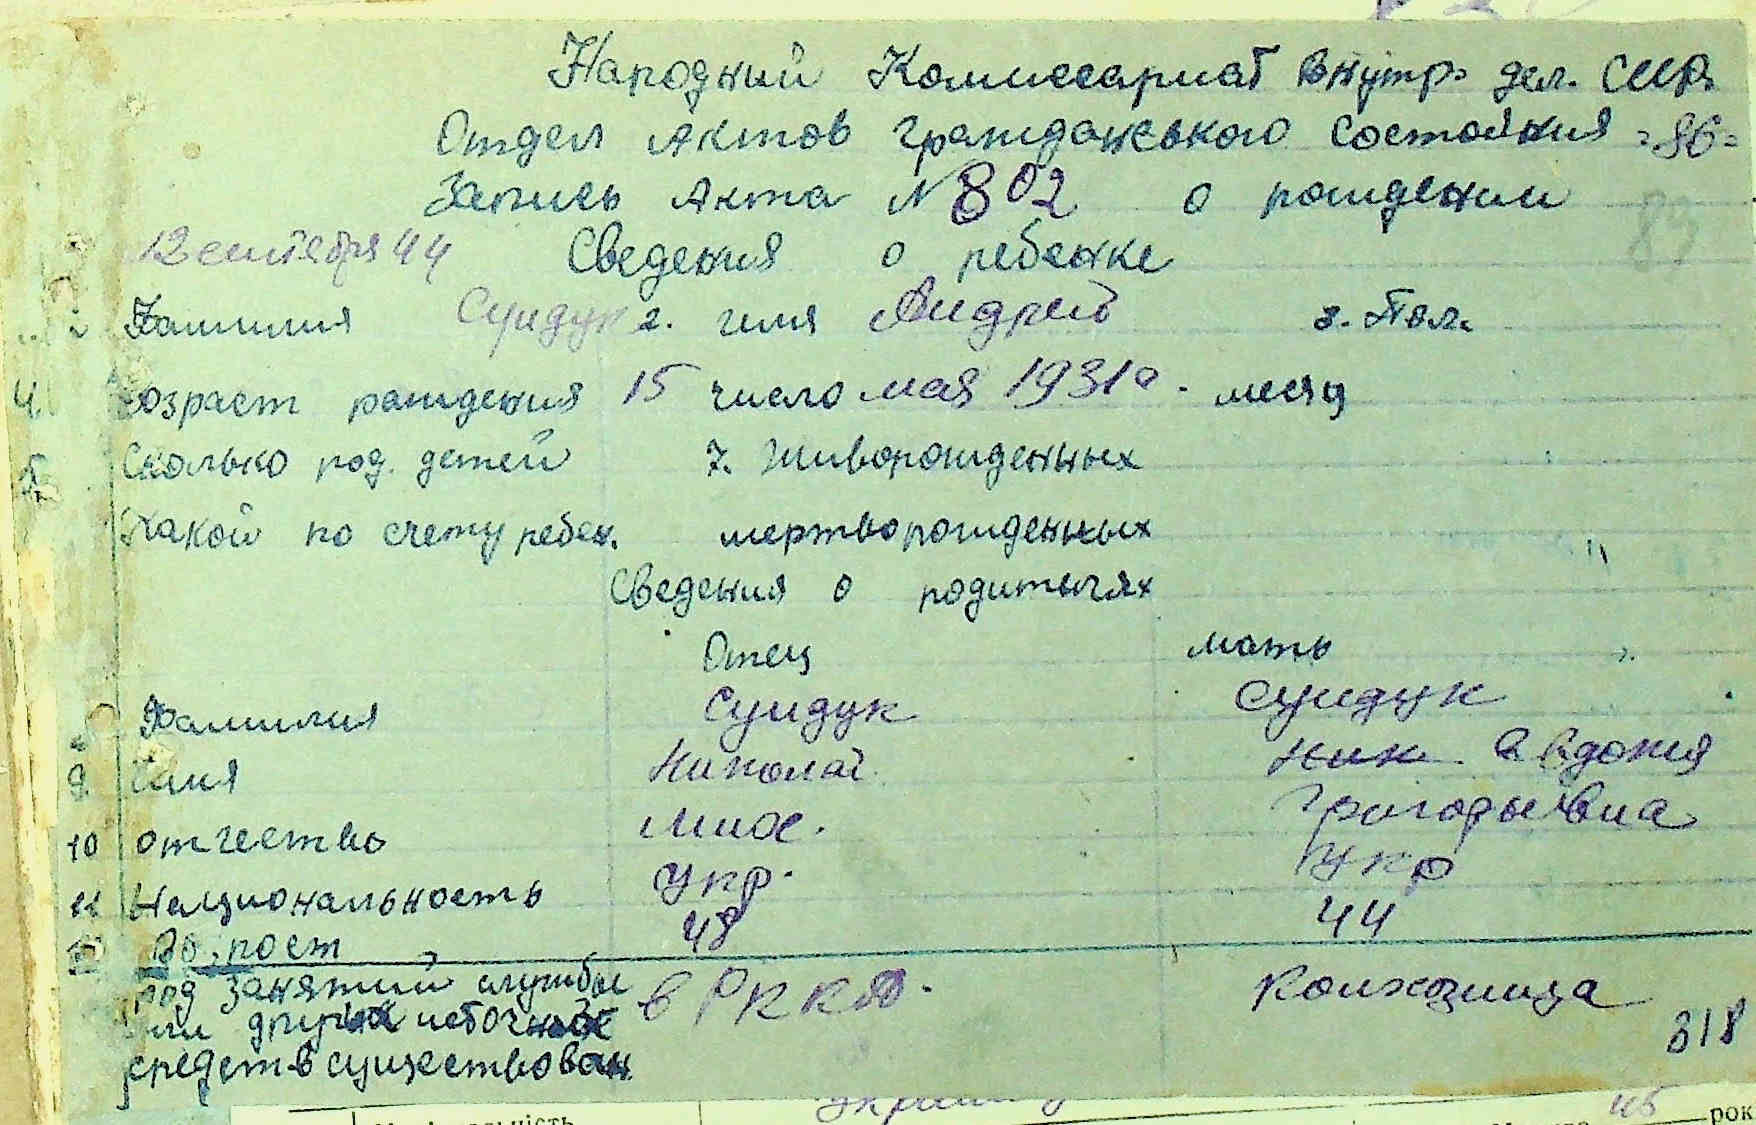 Народний Комиссариат внутр. дел. СССР.
Отдел Актов Гражданського Состояния =86=
Запись Акта № 802 о рождении 83
12 сентября 44 Сведения о ребенке
Фамилия Сундук 2. имя Андрей 3. Пол.
4. Возраст рождения 15 число мая 1931 г. месяц
5 Сколько род. детей 7. живорожденных
Какой по счету ребен. мертворожденных "
Сведения о родитылях
Отец мать
Фамилия Сундук Сундук
9 Имя Николай Ник Евдокия
10 отчество Мих. Григорьевна
11 Национальность Укр. Укр
Возрост 48 44
род занятий службы в РККА. колхозница
или других источников 318
средств существован.
45 рок